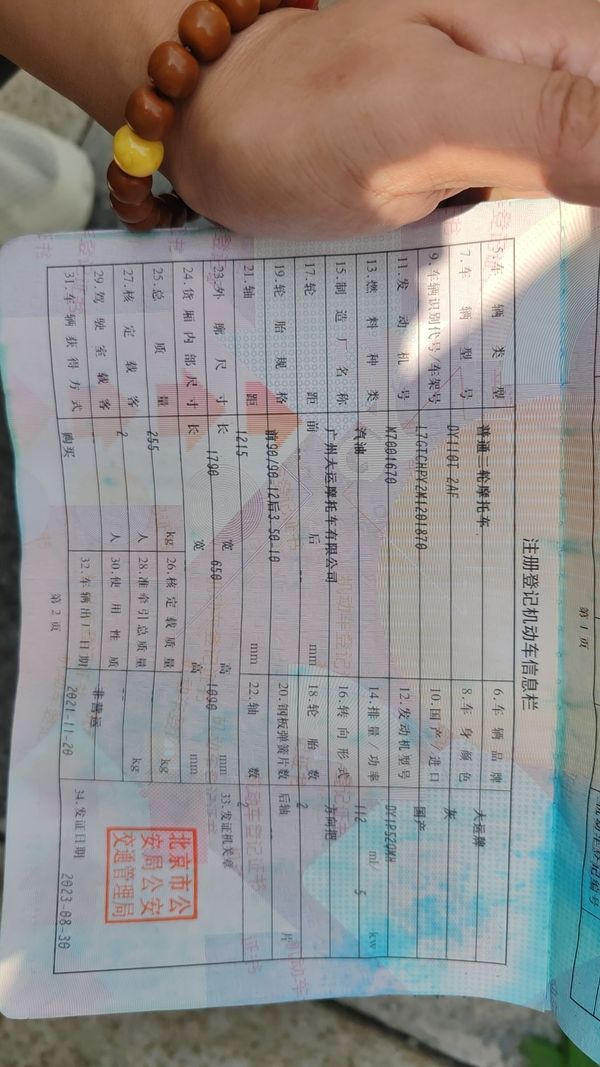 第 1 页
注册登记机动车信息栏
5.车辆类型 普通二轮摩托车 6.车辆品牌 大运牌
7.车辆型号 DY110T-2AF 8.车身颜色 灰
9.车辆识别代号/车架号 L7GTCHPY2M1201870 10.国产/进口 国产
11.发动机号 M7001670 12.发动机型号 DY1P52QMH
13.燃料种类 汽油 14.排量/功率 112 ml/ 5 kw
15.制造厂名称 广州大运摩托车有限公司 16.转向形式 方向把
17.轮距 前 后 mm 18.轮胎数 2
19.轮胎规格 前90/90-12后3.50-10 20.钢板弹簧片数 后轴 片
21.轴距 1215 mm 22.轴数 2
23.外廓尺寸 长 1790 宽 650 高 1080 mm 33.发证机关章
24.货厢内部尺寸 长 宽 高 mm
25.总质量 255 kg 26.核定载质量 kg
27.核定载客 2 人 28.准牵引总质量 kg
29.驾驶室载客 人 30.使用性质 非营运
31.车辆获得方式 购买 32.车辆出厂日期 2021-11-20 34.发证日期 2023-08-30
北京市公
安局公安
交通管理局
第 2 页